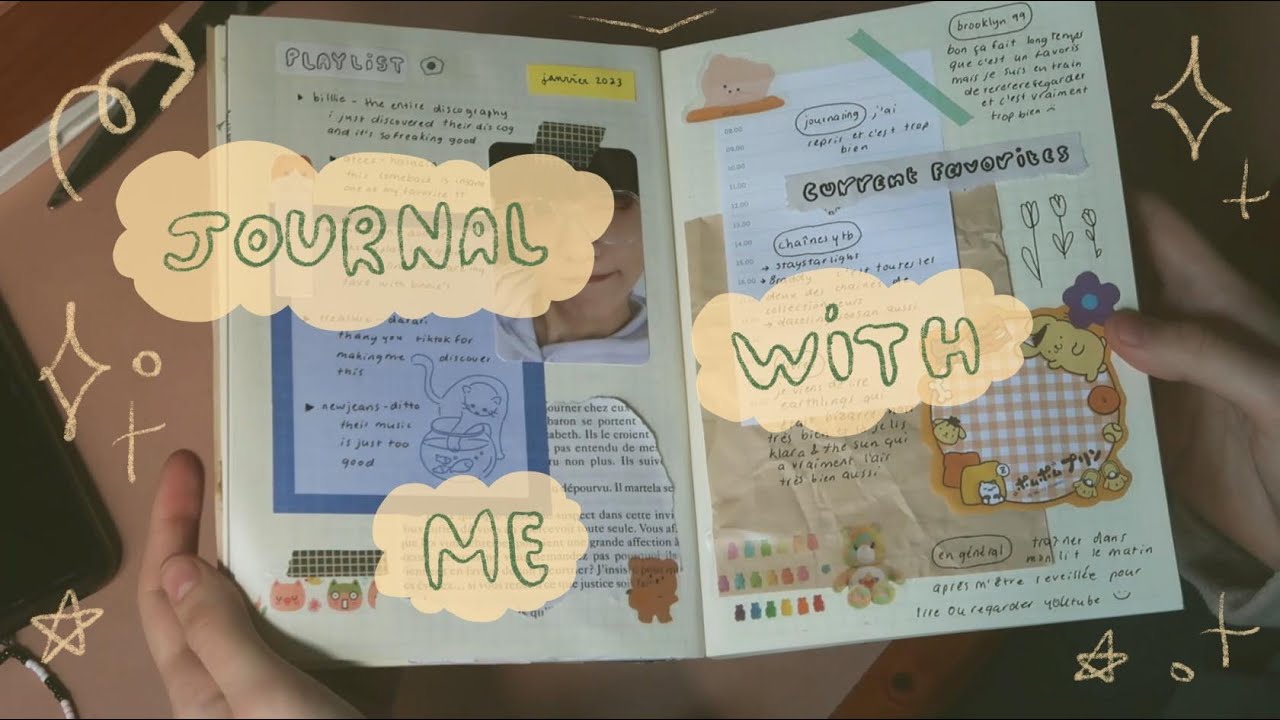 JOURNAL
WITH
ME
PLAYLIST
janvier 2023
billie - the entire discography
i just discovered their discog
and it's so freaking good
this comeback is insane
one of my favorite !!
treasure - darari
thank you tiktok for
making me discover
this
newjeans - ditto
their music
is just too
good
ourner chez eux
baron se portent
abeth. Ils le croient
pas entendu de me
ru non plus. Ils suive
dépourvu. Il martela se
spect dans cette invi
toute seule. Vous af
ent une grande affection à
mandez pas pourquoi ils
J'insis
que justice soi
08.00
09.00
10.00
11.00
12.00
13.00
14.00
15.00
16.00
journaling j'ai
repris et c'est trop
bien
brooklyn 99
bon ça fait longtemps
que c'est un favoris
mais je suis en train
de rerereregarder
et c'est vraiment
trop bien
current favorites
chaînes ytb
→ staystarlight
c'est toutes les
deux des chaînes de
collectionneurs
aussi
je viens de lire
earthlings qui
était bizarre
très bien je lis
klara & the sun qui
a vraiment l'air
très bien aussi
ポムポムプリン
en général traîner dans
mon lit le matin
après m'être réveillée pour
lire ou regarder youtube